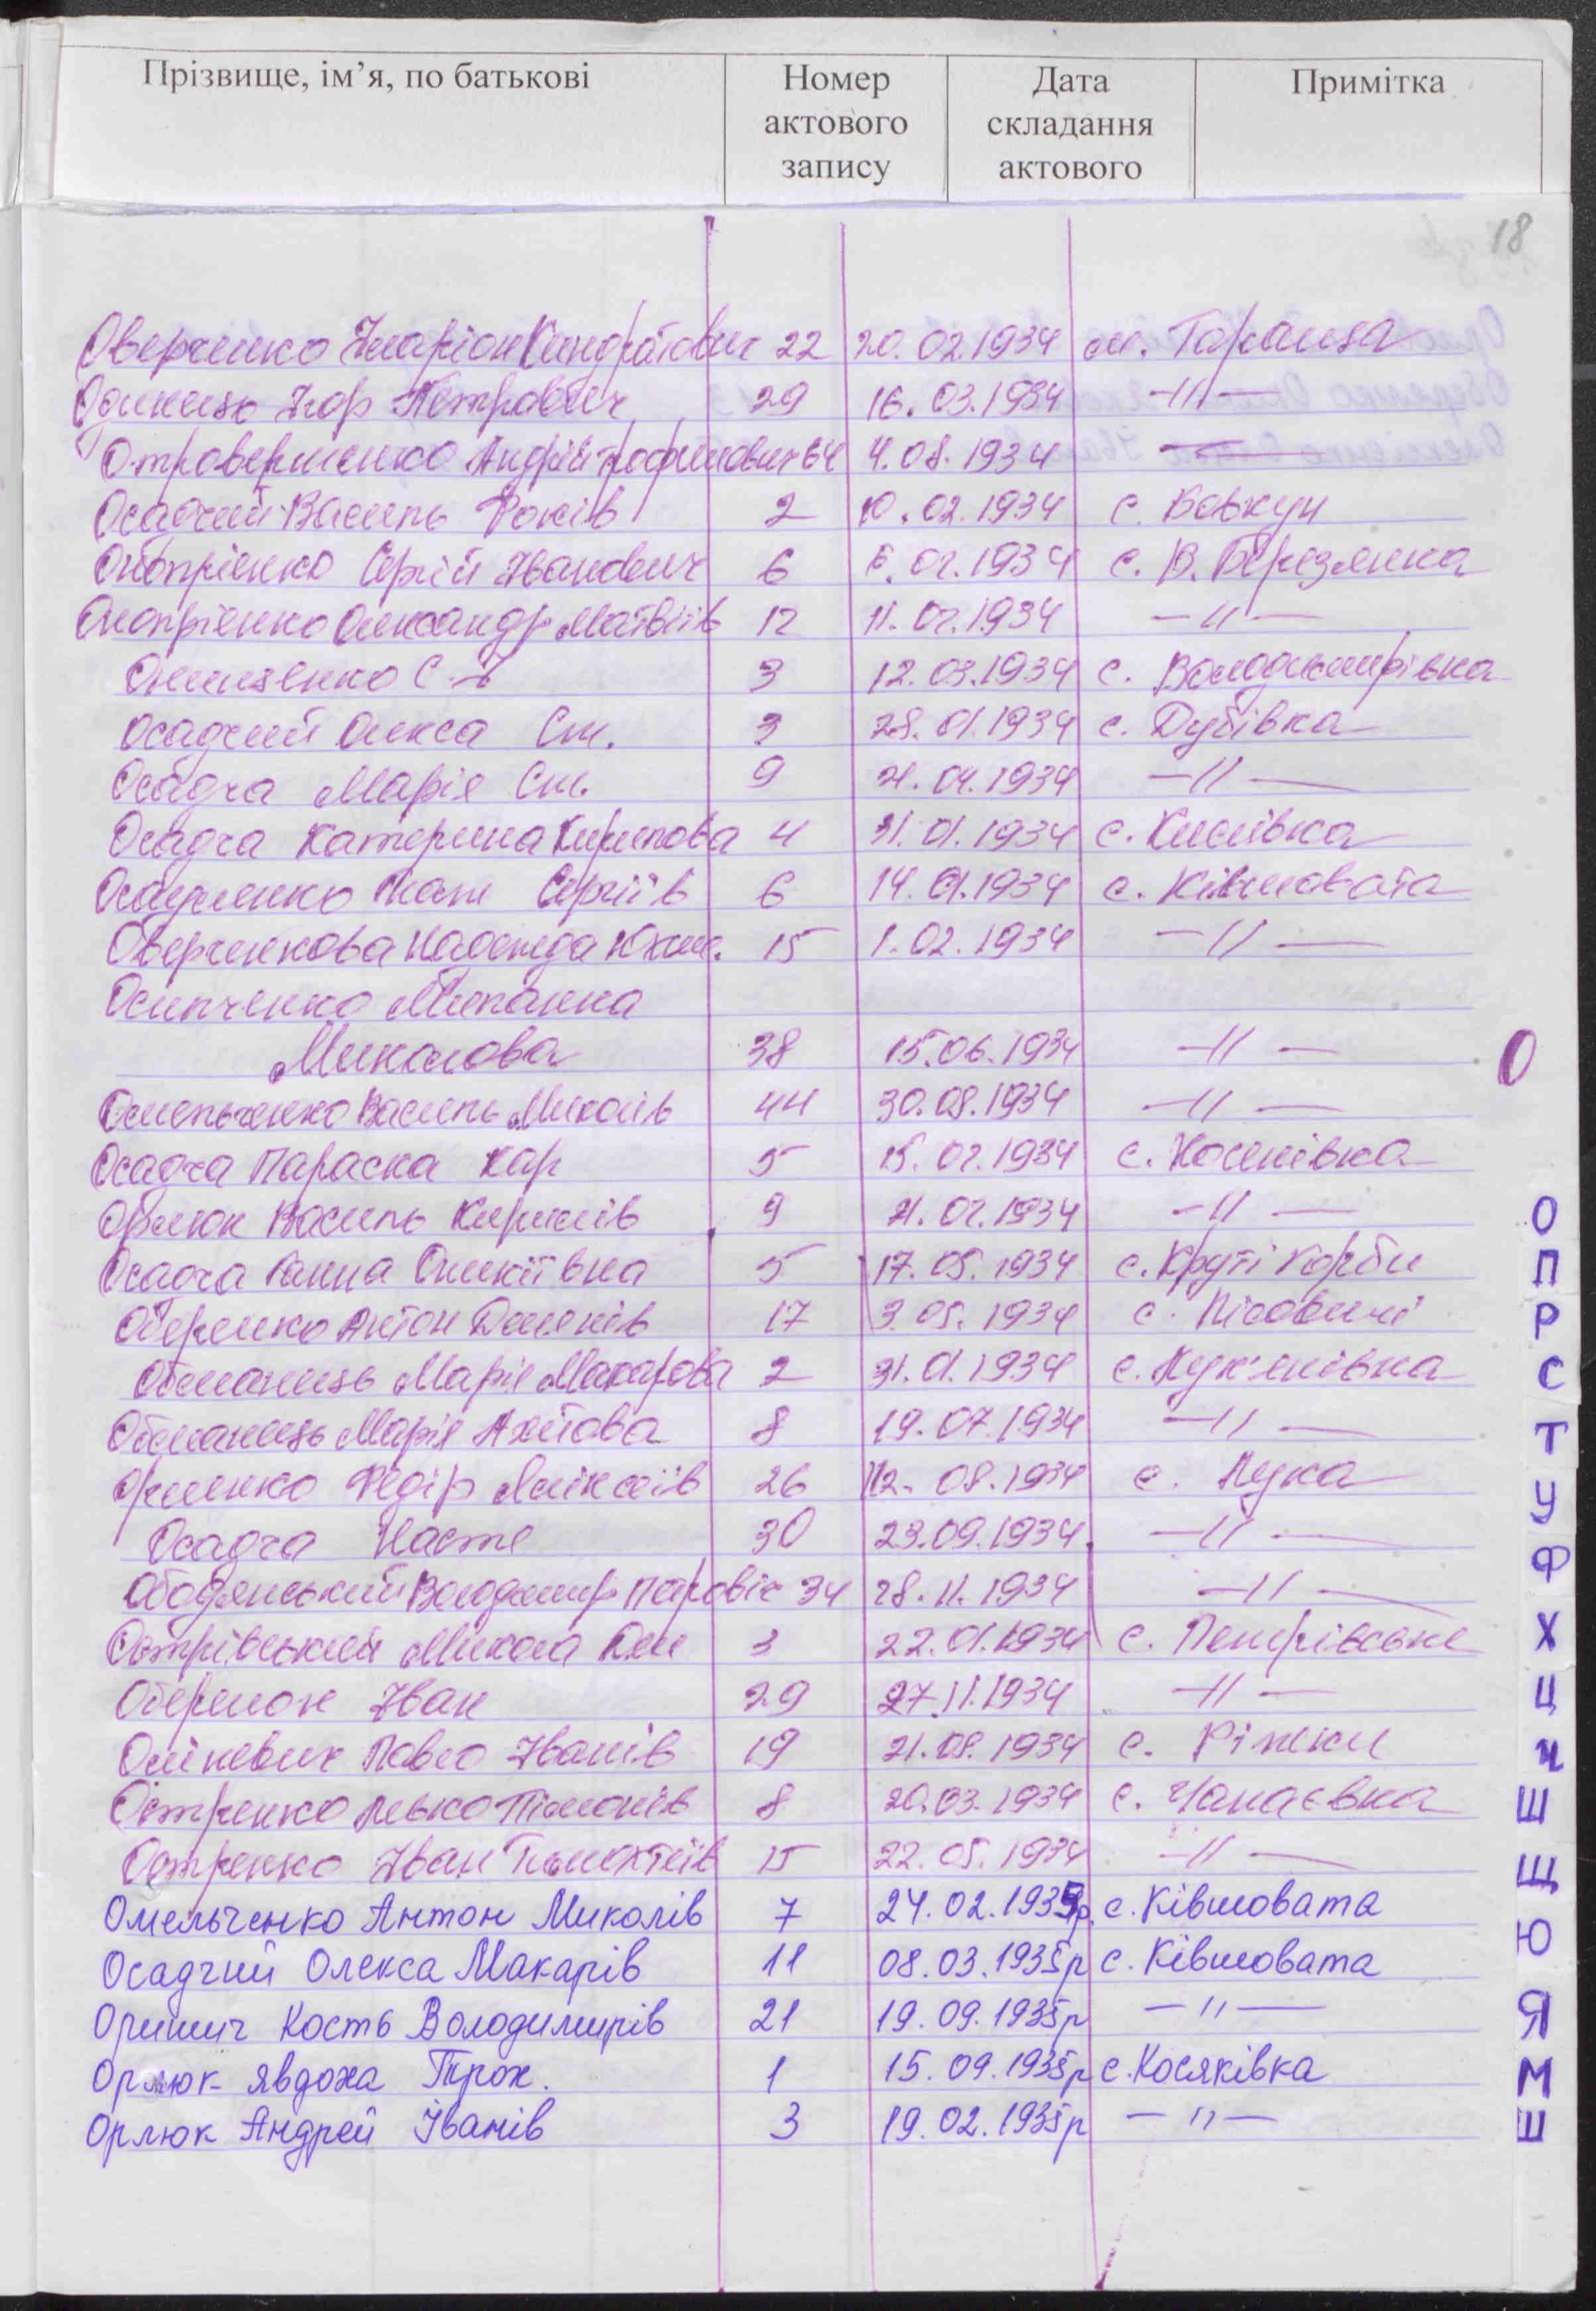 Прізвище, ім’я, по батькові
Номер актового запису
Дата складання актового
Примітка
18
Оверченко Іларіон Кіндратович 22 20.02.1934 м. Тараща
Одинець Ігор Петрович 29 16.03.1934 -//-
Отровершенко Андрій Трофимович 64 4.08.1934 —
Осадчий Василь Фоків 2 10.02.1934 с. Вовкун
Онопрієнко Сергій Іванович 6 6.02.1934 с. В. Березянка
Онопрієнко Олександр Матвіїв 12 11.02.1934 -//-
Онищенко С. 3 12.03.1934 с. Володимирівка
Осадчий Олекса См. 3 28.01.1934 с. Дубівка
Осадча Марія См. 9 21.04.1934 -//-
Осадча Катерина Кирилова 4 31.01.1934 с. Кислівка
Сергіїв 6 14.01.1934 с. Ківшовата
Оверченкова Надежда Юхим. 15 1.02.1934 -//-
Осипченко Миланка
Миколова 38 15.06.1934 -//-
Омельченко Василь Миколів 44 30.08.1934 -//-
Осадча Параска Кар 5 15.02.1934 с.
Орлюк Василь Кирилів 9 21.02.1934 -//-
Осадча Ганна Оникіївна 5 17.05.1934 с. Круті Горби
Антон Дем'янів 17 3.05.1934 с. Лісовичі
Обманець Марія Макарова 2 31.01.1934 с. Лук'янівка
Обманець Марія 8 19.07.1934 -//-
Федір Олексіїв 26 12.08.1934 с. Лука
Осадча Настя 30 23.09.1934 -//-
Ободянський Володимир Петрович 34 28.11.1934 -//-
Острівський Микола Дем 3 22.01.1934 с. Петрівське
Іван 29 27.11.1934 -//-
Олійневич Павло Іванів 19 21.08.1934 с. Ріжки
Остренко Левко 8 20.03.1934 с. Чапаєвка
Остренко Іван Тимохтеїв 15 22.05.1934 -//-
Омельченко Антон Миколів 7 24.02.1935р. с. Ківшовата
Осадчий Олекса Макарів 11 08.03.1935р с. Ківшовата
Оришич Кость Володимирів 21 19.09.1935р -//-
Орлюк Явдоха Трох. 1 15.09.1935р с. Косяківка
Орлюк Андрей Іванів 3 19.02.1935р -//-
О
О
П
Р
С
Т
У
Ф
Х
Ц
Ч
Ш
Щ
Ю
Я
М
Ш